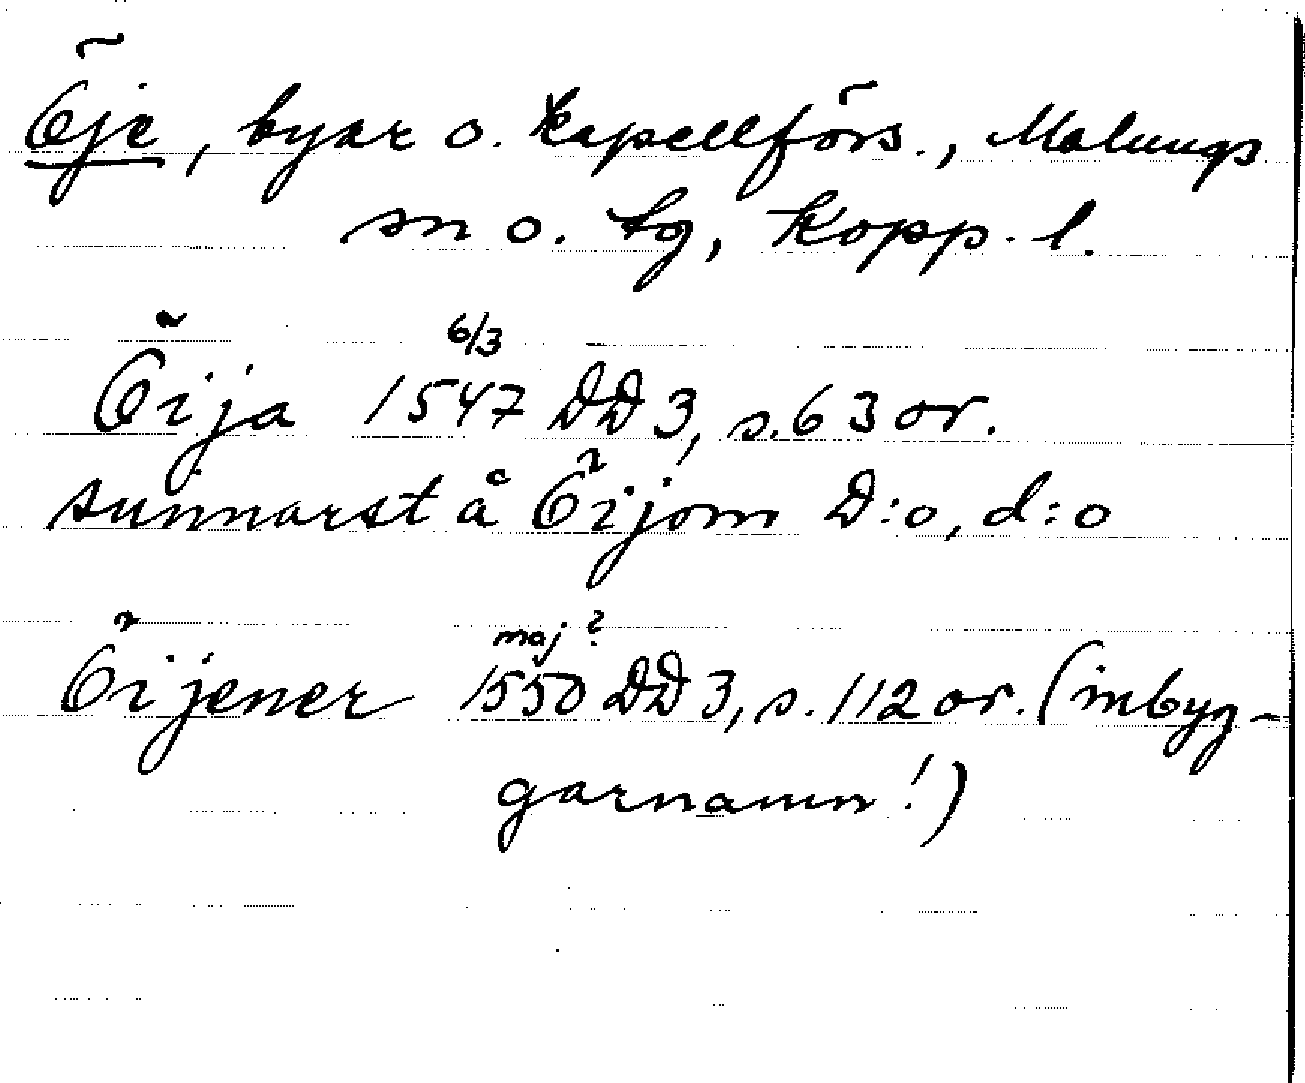 Öje, byar o. kapellförs., Malungs
sn o. tg, Kopp. l.
Öija 1547 6/3 DD 3, s. 63 or.
sunnarst å Öijom D:o, d:o
Öijener 1550 maj? DD 3, s. 112 or. (inbyg-
garnamn!)